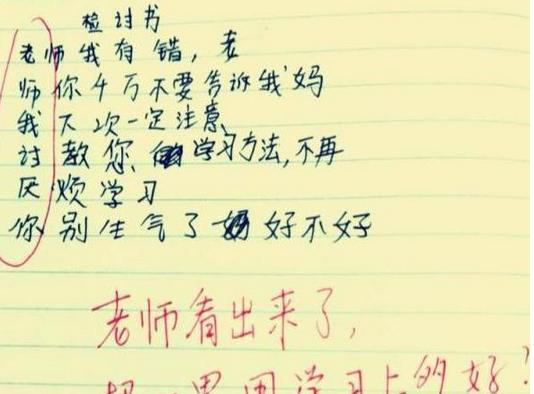 检讨书
老师我有错，老
师你千万不要告诉我妈
我下次一定注意，
讨教您的学习方法，不再
厌烦学习
你别生气了 好不好
老师看出来了，
思用学习上的好！